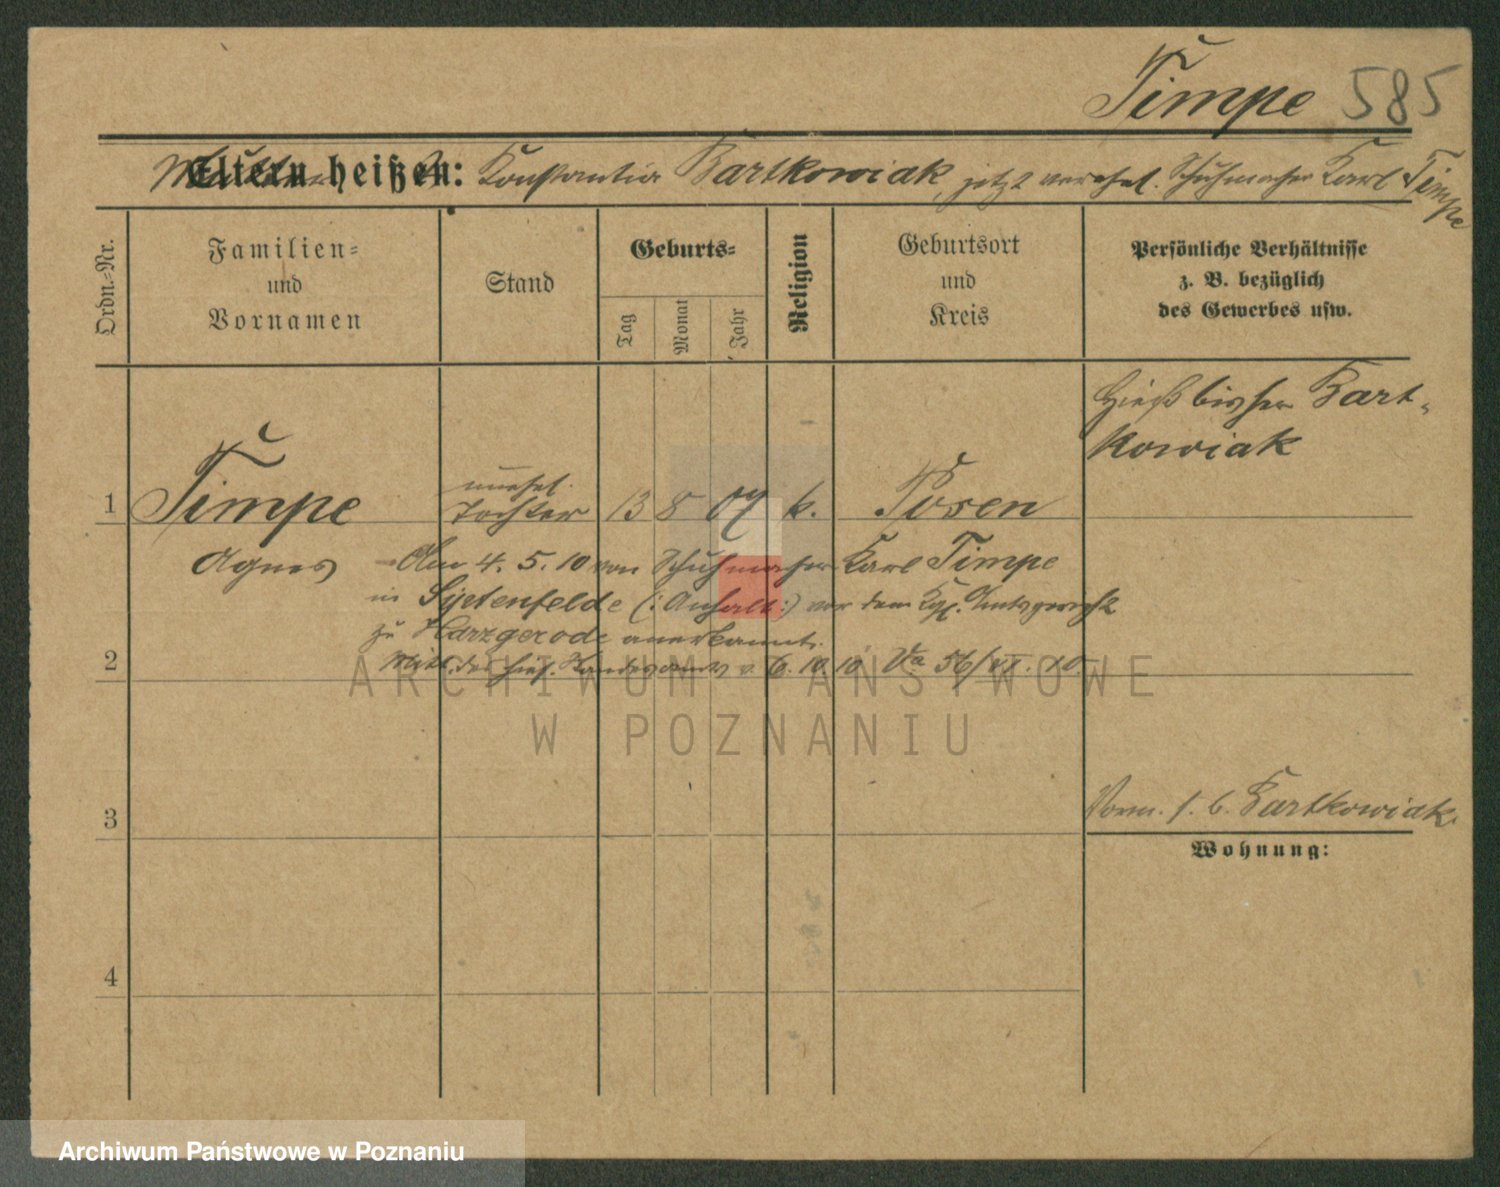 Timpe 585
Eltern heißen: Konstantia Bartkowiak, jetzt verehel. Schuhmacher Karl Timpe
Ordn.-Nr.
Familien-
und
Vornamen
Stand
Geburts-
Tag
Monat
Jahr
Religion
Geburtsort
und
Kreis
Persönliche Verhältnisse
z. B. bezüglich
des Gewerbes usw.
Hieß bisher Bart-
kowiak
unehel.
1 Timpe Tochter 13 8 07 k. Posen
Agnes Am 4. 5. 10 von Schuhmacher Karl Timpe
in (: Anhalt :) vor dem Kgl. Amtsgericht
zu Harzgerode anerkannt.
2
Mittl. des hies. Standesamts v. 6. 10. 10 Va 56/VI. 10.
ARCHIWUM PAŃSTWOWE
W POZNANIU
3
Vorm. f. b. Bartkowiak.
Wohnung:
4
Archiwum Państwowe w Poznaniu